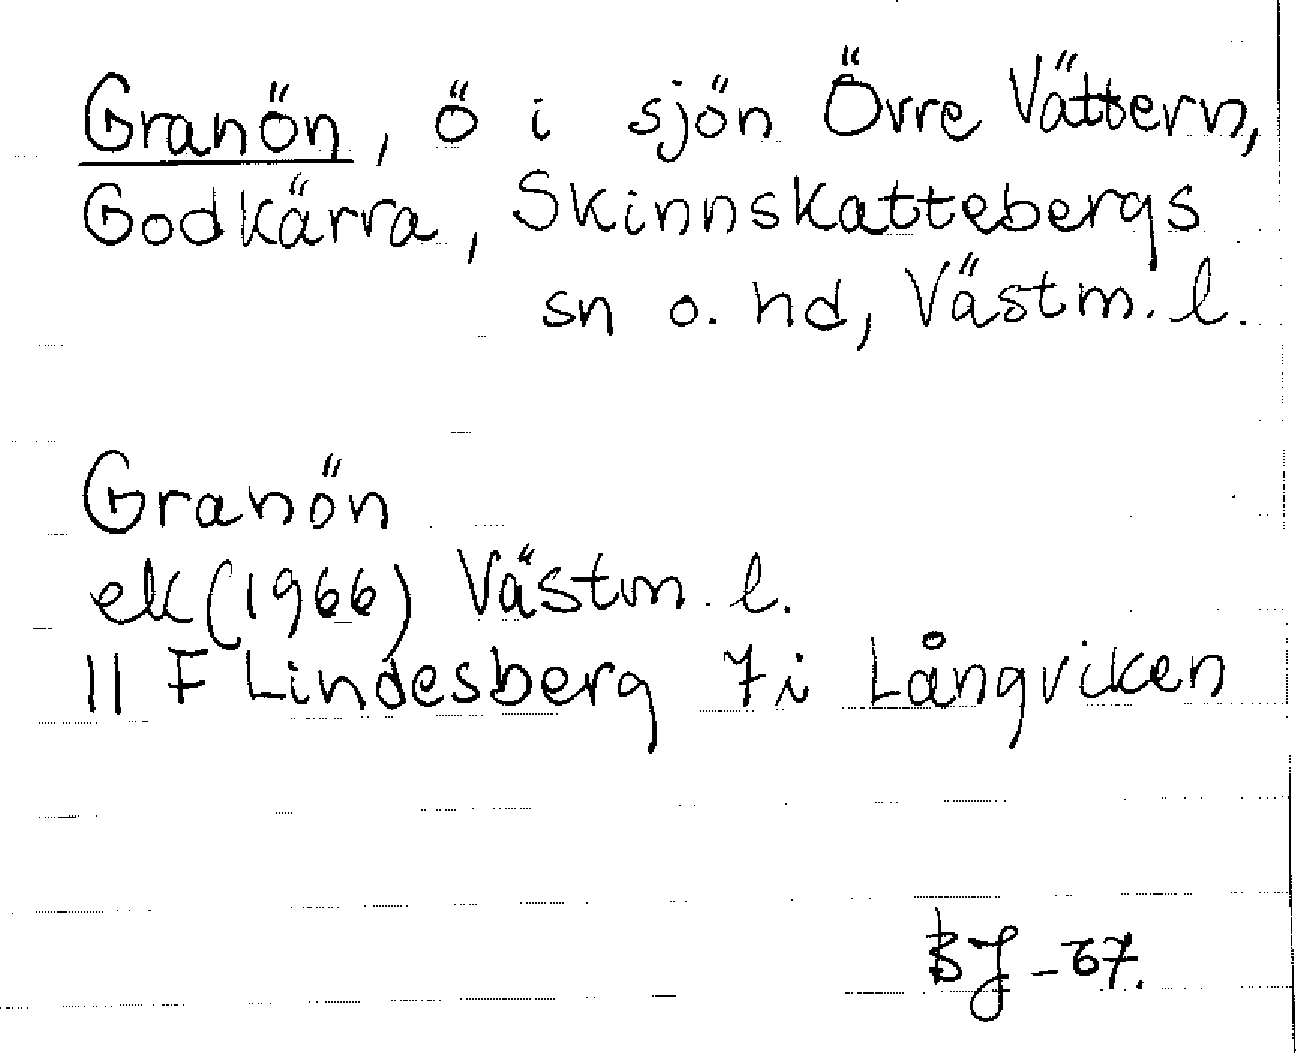 Granön, ö i sjön Övre Vättern,
Godkärra, Skinnskattebergs
sn o. hd, Västm. l.
Granön
ek (1966) Västm. l.
11 F Lindesberg 7i Långviken
BJ -67.